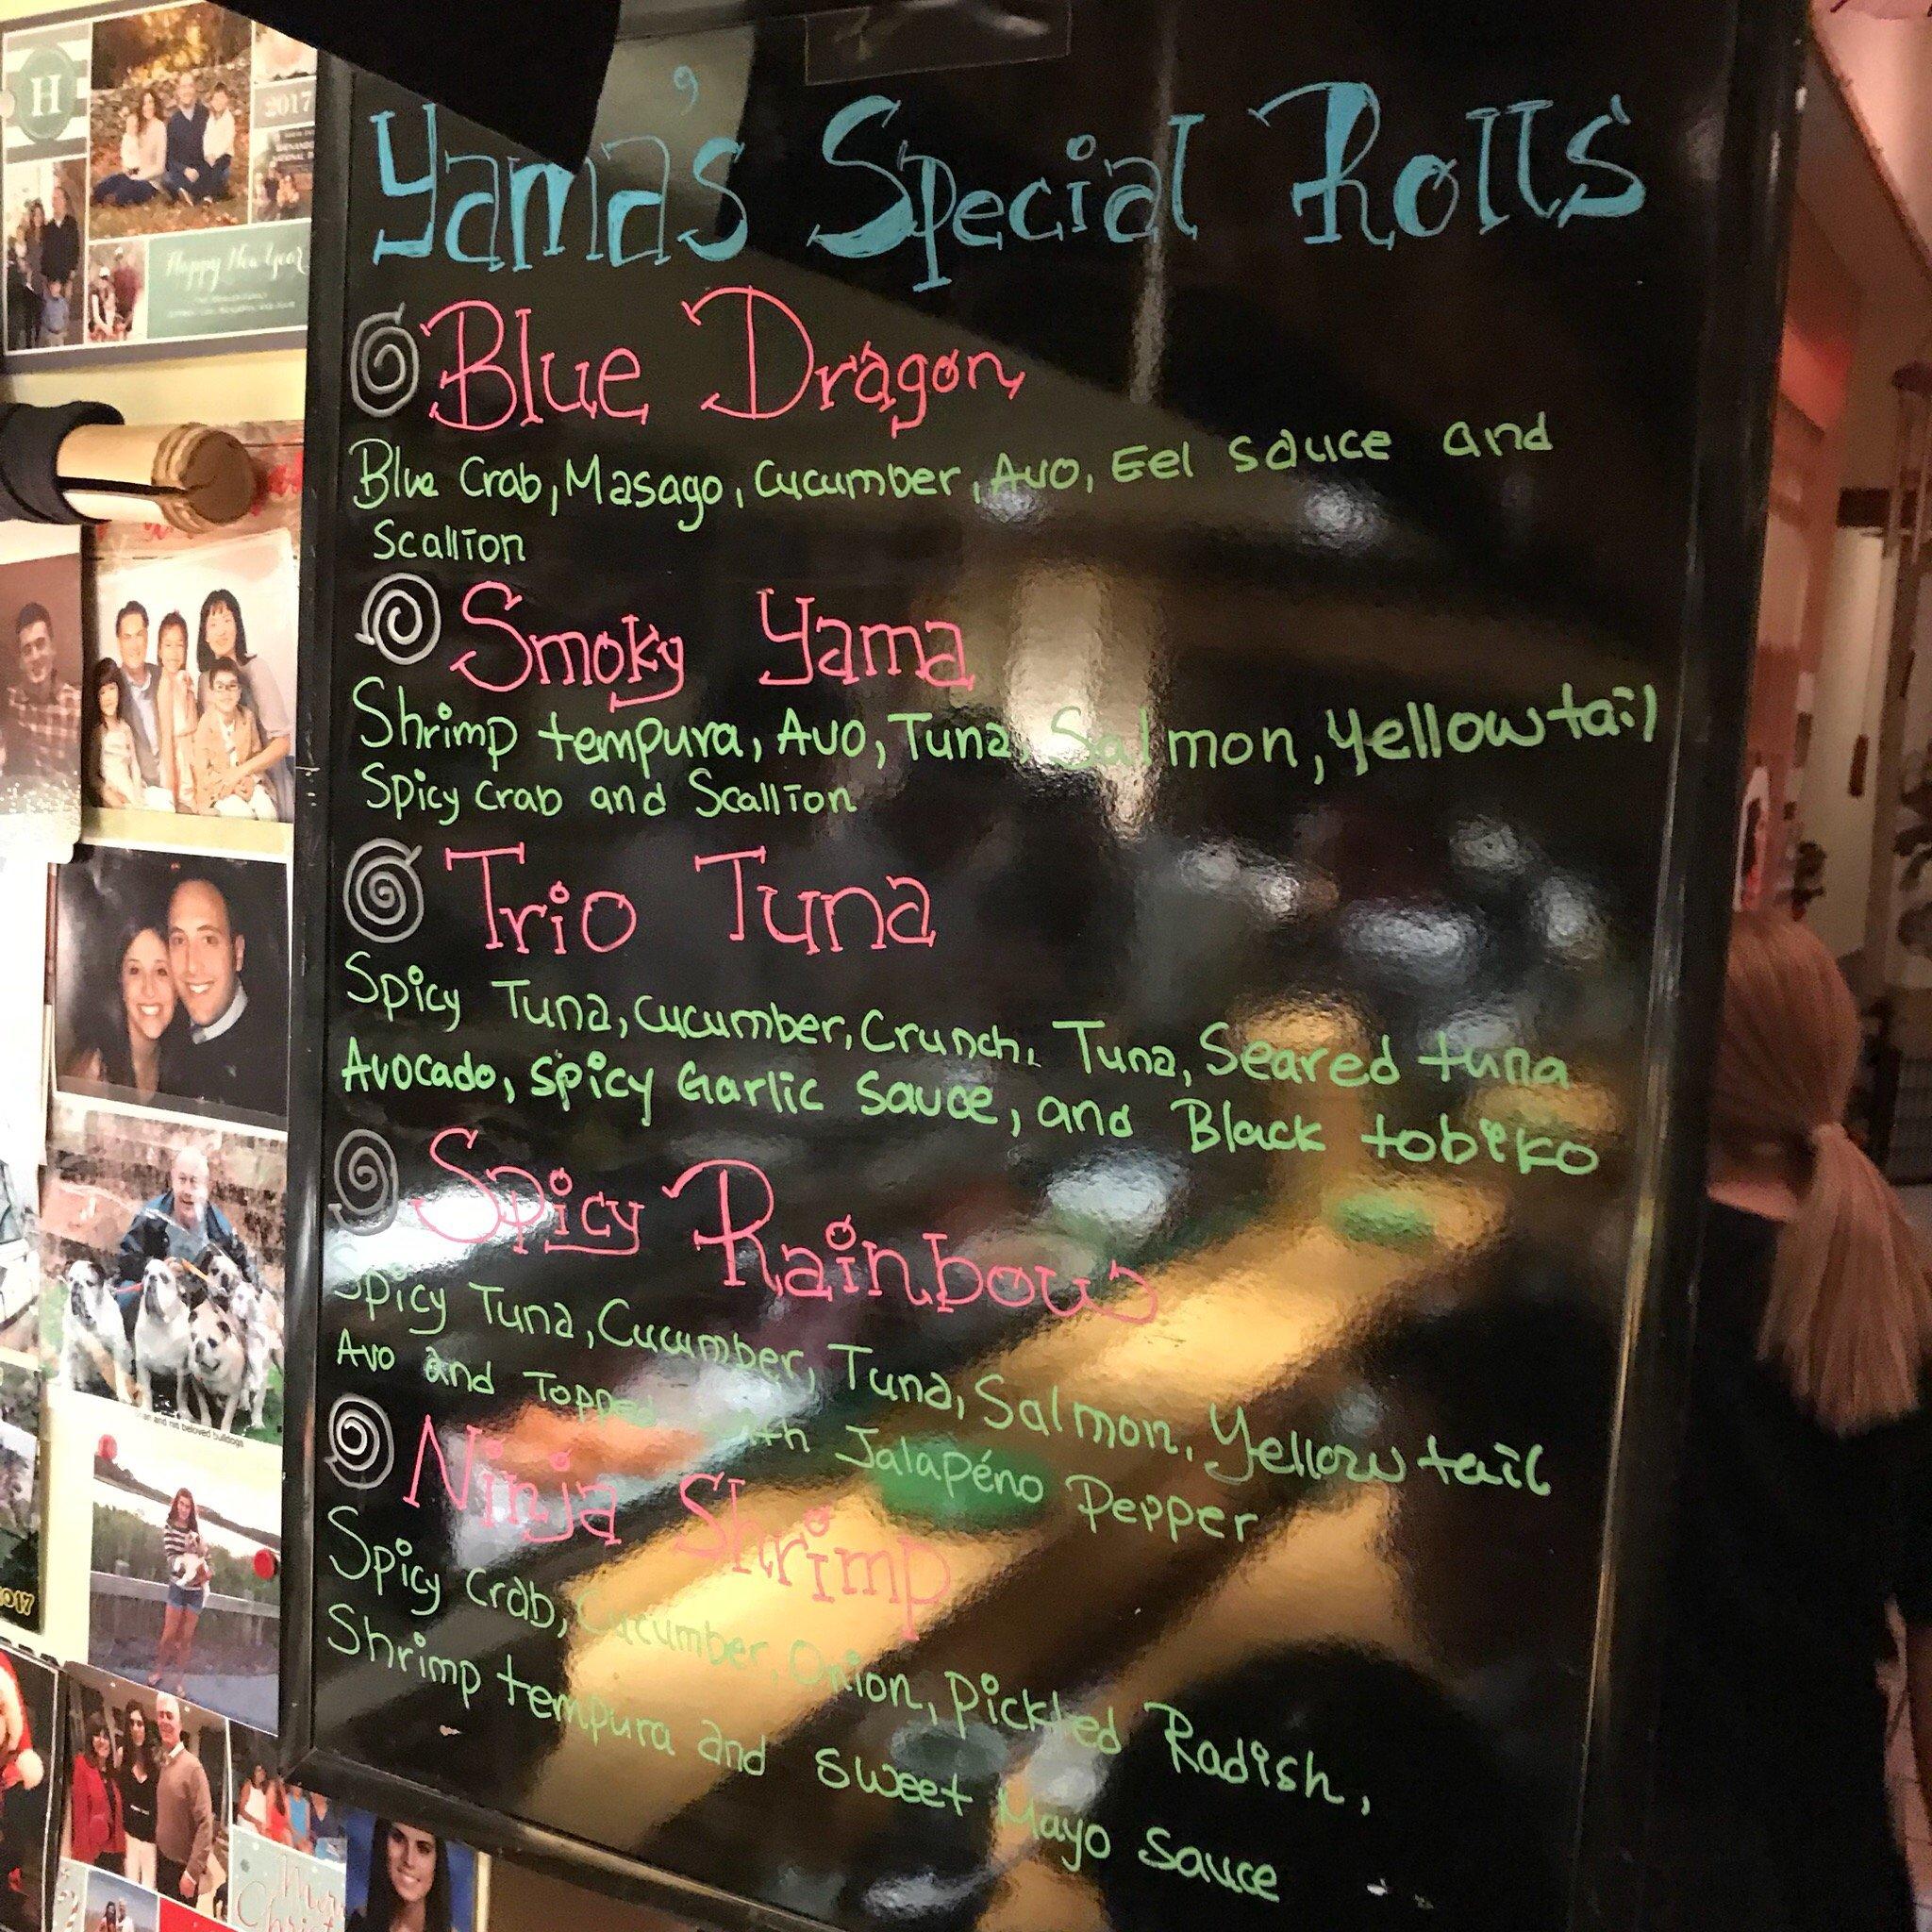 Yama's Special Rolls
Blue Dragon
Blue Crab, Masago, Cucumber, Avo, Eel sauce and
Scallion
Smoky Yama
Shrimp tempura, Avo, Tuna, Salmon, Yellowtail
Spicy Crab and Scallion
Trio Tuna
Spicy Tuna, Cucumber, Crunch, Tuna, Seared tuna
Avocado, Spicy Garlic Sauce, and Black tobiko
Spicy Rainbow
Spicy Tuna, Cucumber, Tuna, Salmon, Yellow tail
Avo and Topped with Jalapéno Pepper
Ninja Shrimp
Spicy Crab, Cucumber, Onion, Pickled Radish,
Shrimp tempura and Sweet Mayo Sauce
H
2017
Happy New Year
and his beloved bulldogs
2017